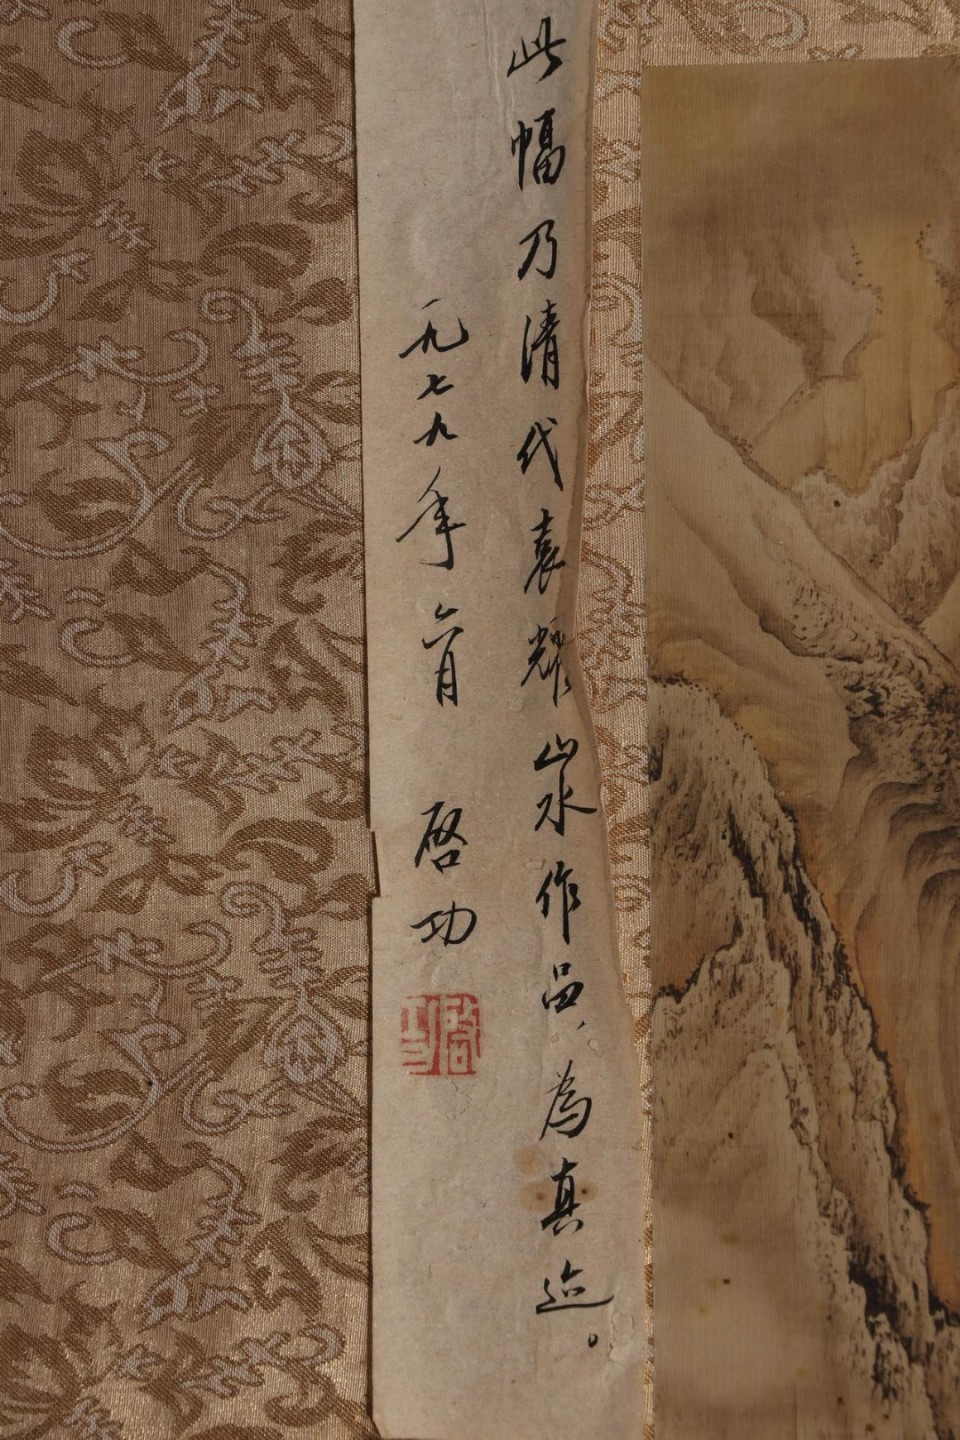 此幅乃清代袁耀山水作品、为真迹。
一九七九年六月 启功
启功